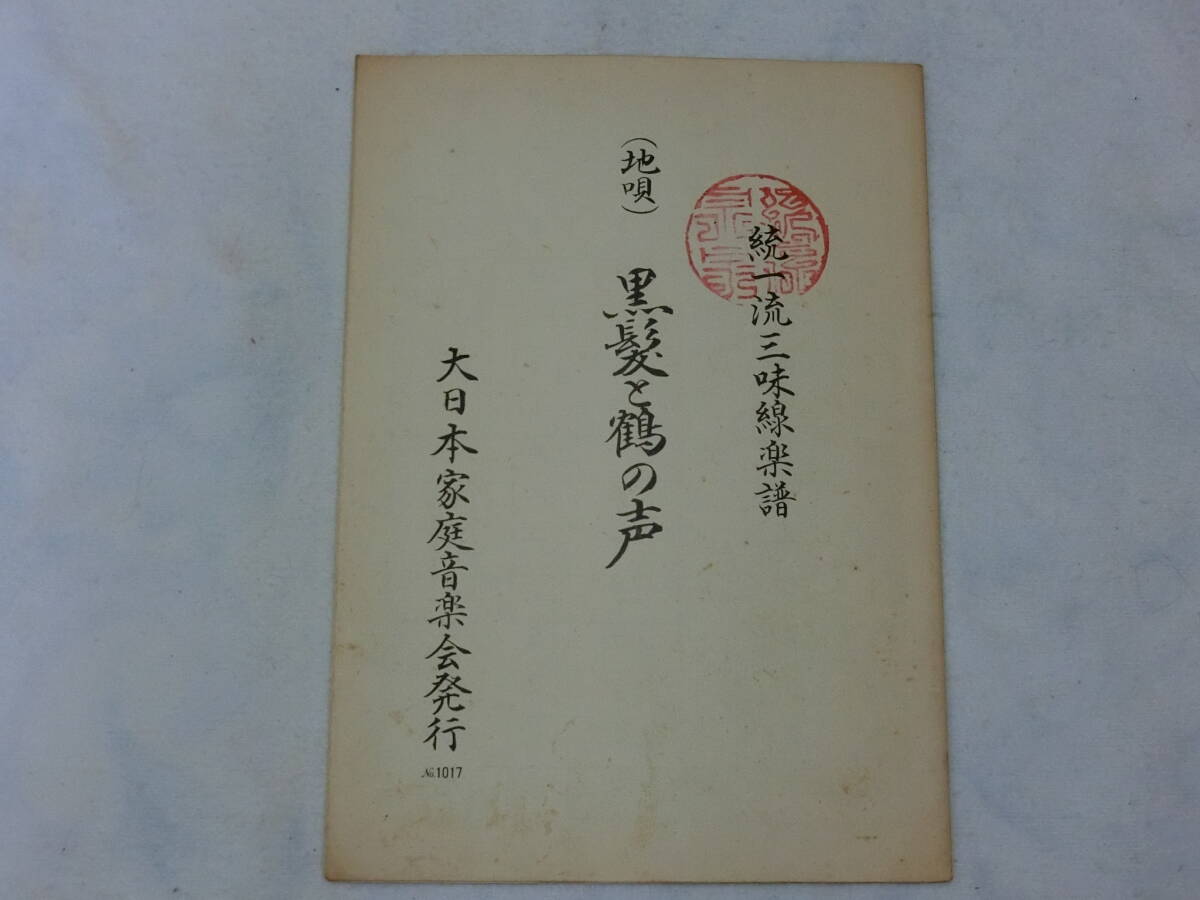 統一流三味線楽譜
（地唄）　黒髪と鶴の声
大日本家庭音楽会発行
№1017